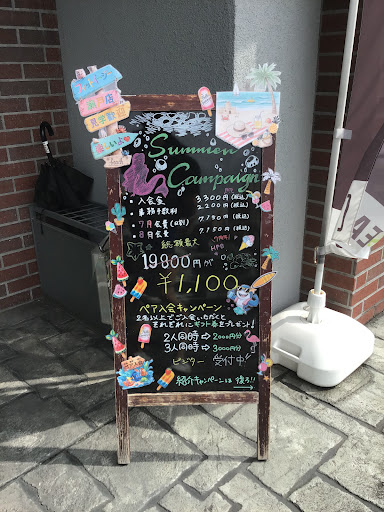 見学歓迎
楽しいよ
Summer
Campaign
入会金 3300円(税込)
事務手数料 2200円(税込)
7月会費(日割) 7150円(税込)
8月会費 7150円(税込)
総額最大
19800円が
¥1,100
ペア入会キャンペーン
2名以上でご入会いただくと
それぞれにギフト券をプレゼント!
2人同時⇨2000円分
3人同時⇨3000円分
ビジター 受付中!
紹介キャンペーンは後ろ!!